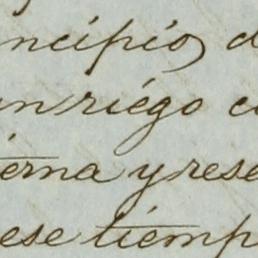 ncipio, d
un riégo c
erna y rese
ese tiemp